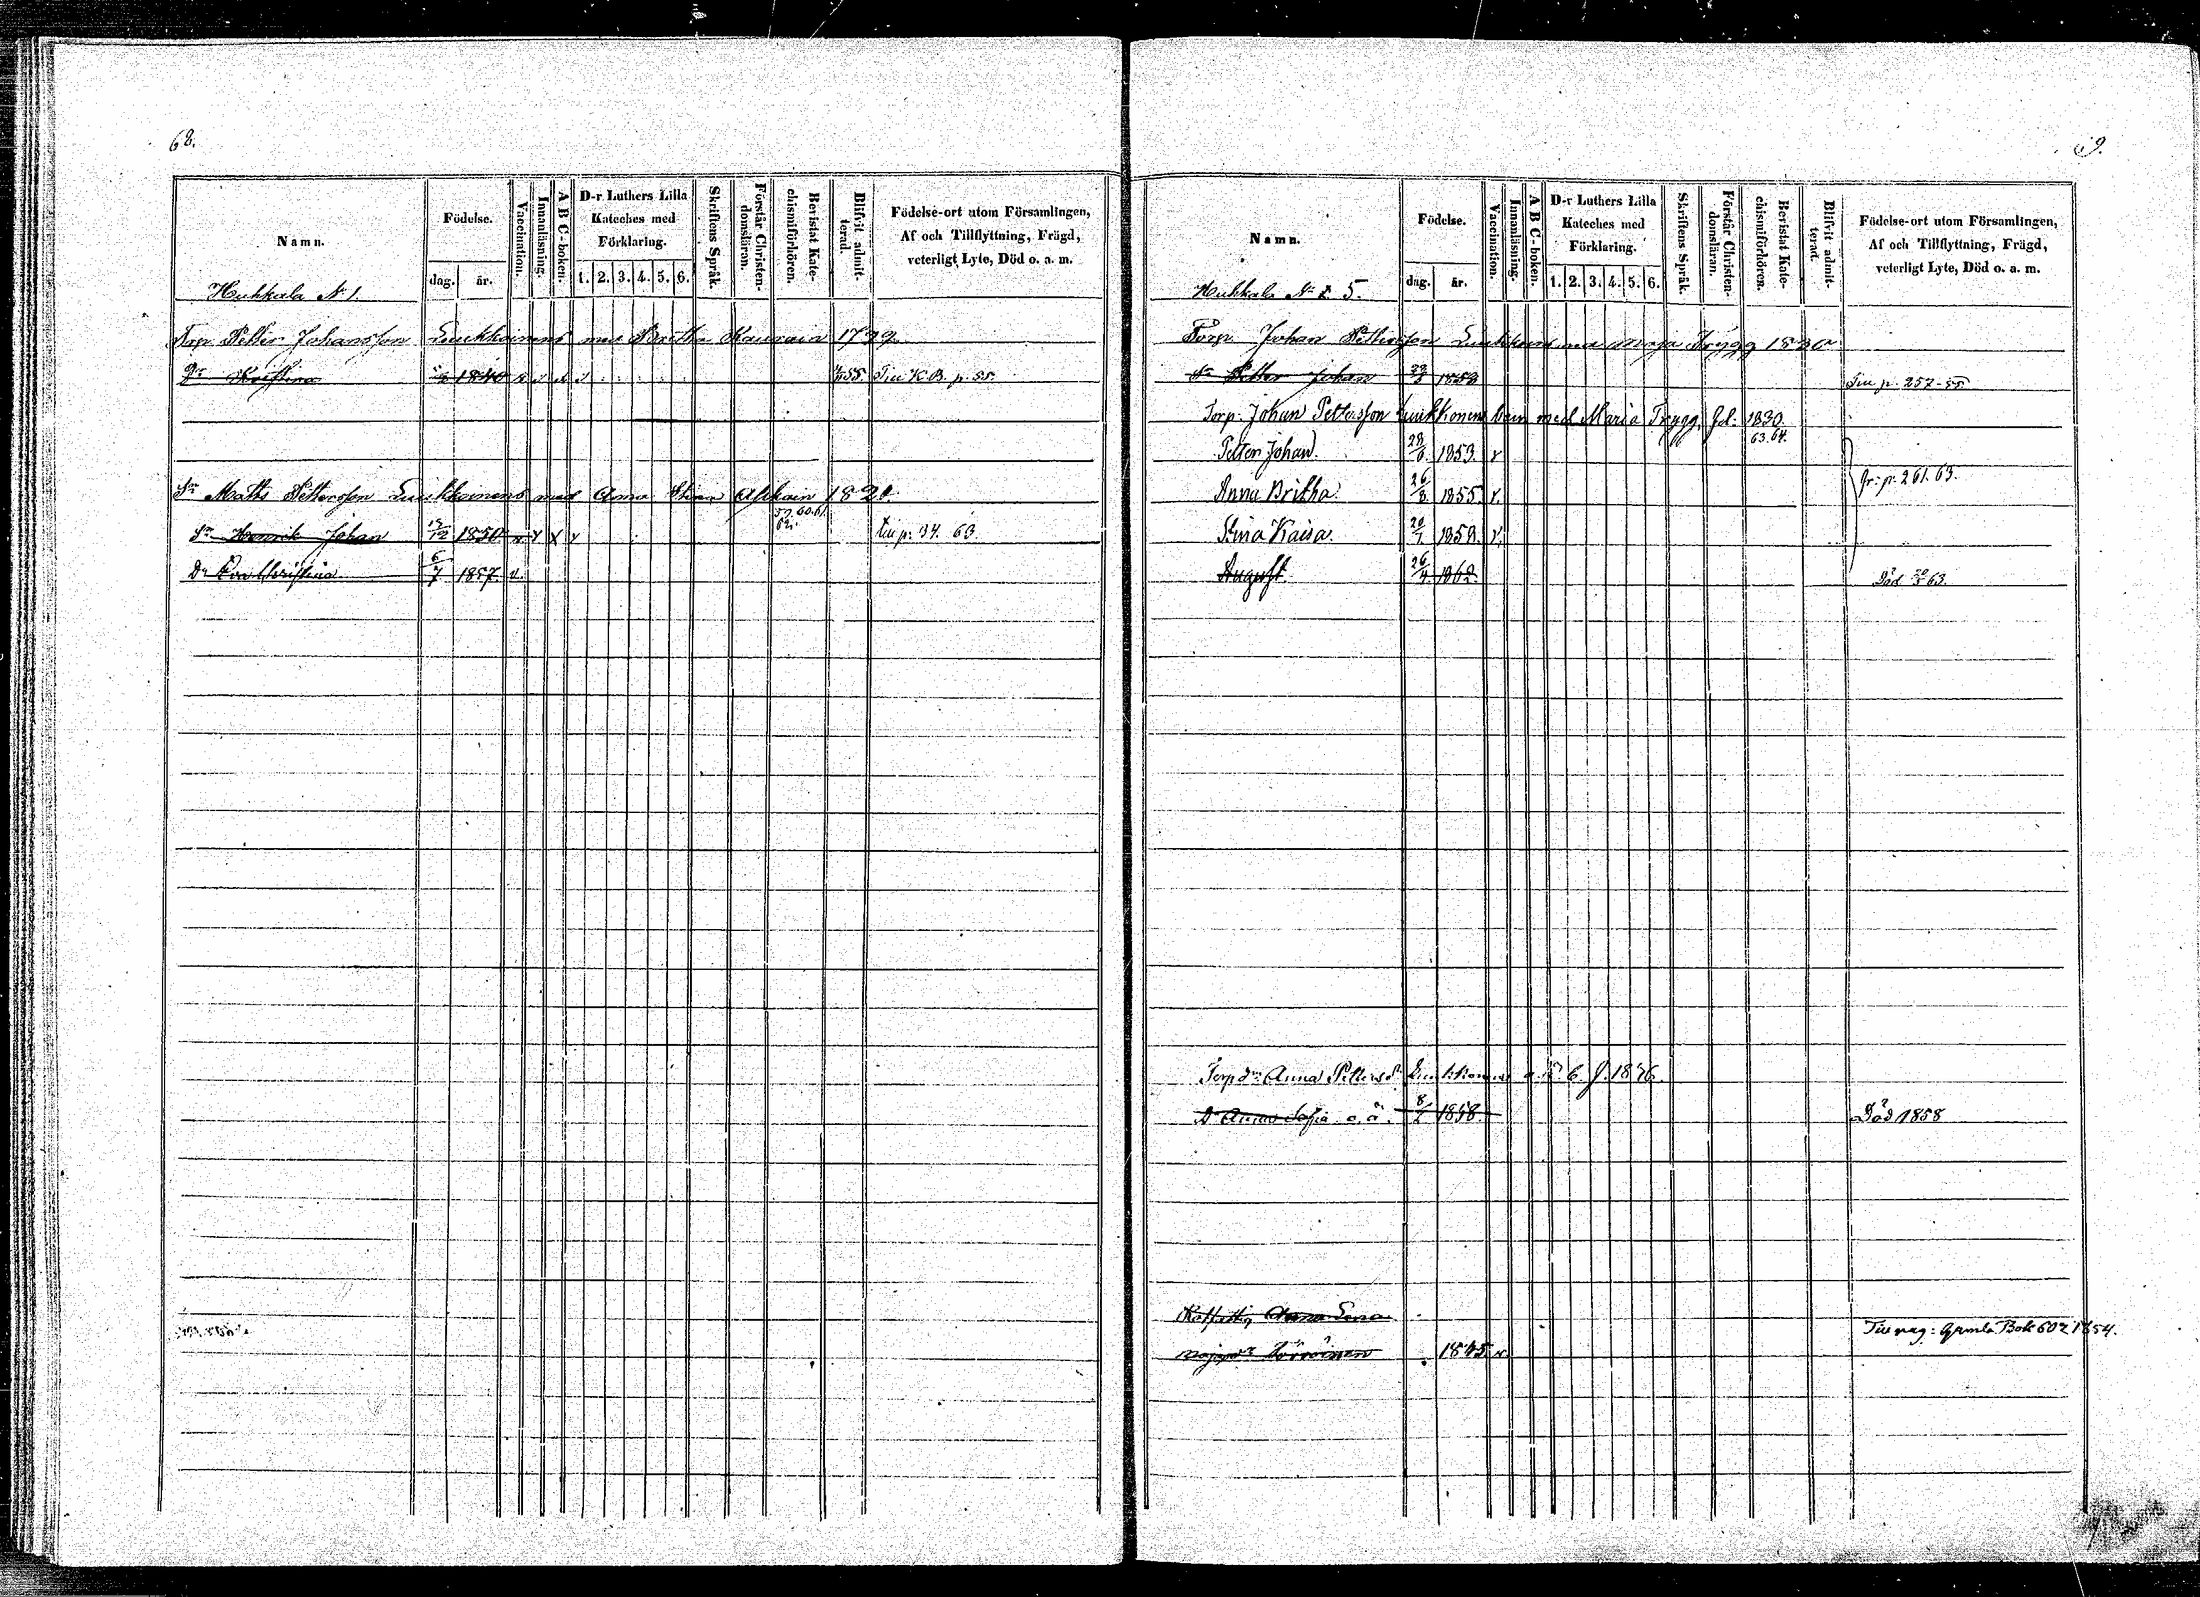 68.
Namn.
Födelse.
dag. år.
Vaccination.
Innanläsning.
A B C-boken.
D-r Luthers Lilla
Kateches med
Förklaring.
1. 2. 3. 4. 5. 6.
Skriftens Språk.
Förstår Christen-
domsläran.
Bevistat Kate-
chismiförhören.
Blifvit admit-
terad.
Födelse-ort utom Församlingen,
Af och Tillflyttning, Frägd,
veterligt Lyte, Död o. a. m.
Huhkala N 1.
Torp. Petter Johansson Luukkoinens med Britha 1799
Dr Kristina 1840 55. Till K.B. p. 55.
Sn Matts Pettersson Luukkoinens med Anna Stina 1820
59. 60. 61.
62.
Sn Henrik Johan 12/12 1850 till p: 34. 63.
Dr Eva Christina 6/7 1857 v.
9.
Namn.
Födelse.
dag. år.
Vaccination.
Innanläsning.
A B C-boken.
D-r Luthers Lilla
Kateches med
Förklaring.
1. 2. 3. 4. 5. 6.
Skriftens Språk.
Förstår Christen-
domsläran.
Bevistat Kate-
chismiförhören.
Blifvit admit-
terad.
Födelse-ort utom Församlingen,
Af och Tillflyttning, Frägd,
veterligt Lyte, Död o. a. m.
Huhkala N 5.
Torp. Johan Pettersson Luukkoins med Maja Trygg 1830
Sn Petter Johan 1853 Till p. 257-55
Torp. Johan Pettersson Luukkonens barn med Maria Trygg, fd: 1830.
63. 64.
Petter Johan. 28/6. 1853. v
Anna Britha. 26/3. 1855. v. fr: p. 261. 63.
Stina Kaisa 20/1 1858. v.
August 26/4. 1862. Död 20/5 63.
Torp dr Anna Pettersdr Luukkonens o. ä. b. f. 1836.
Dr Anna Sofia o. ä. 8/2 1858. Död 1858
Anna Lena
1845. v. Till pag: Gamla Bok 602 1854.